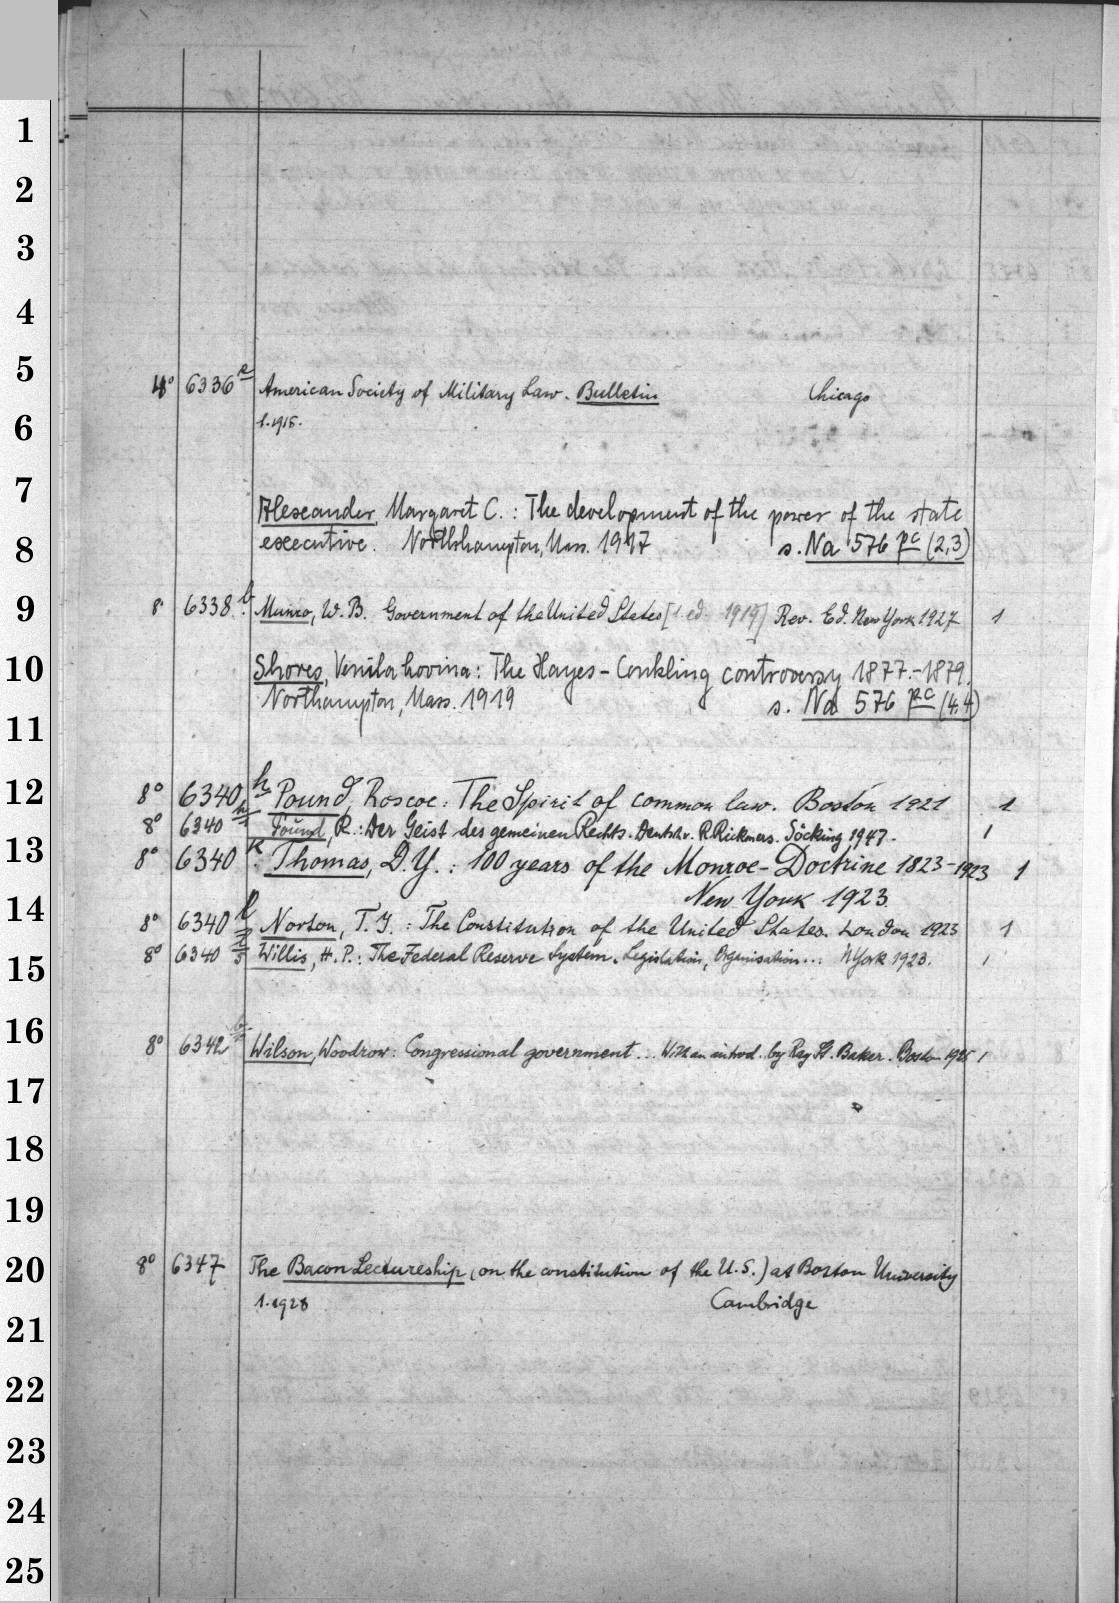 1
2
3
4
5
4° 6336 a American Society of Military Law. Bulletin Chicago
6
1.1915.
7
Alexander, Margaret C.: The development of the power of the state
8
executive. Northhampton, Mass. 1917 s. Na 576 pc (2,3)
9
8° 6338 b Munro, W. B. Government of the United States [1 ed. 1919] Rev. Ed. New York 1927 1
10
Shores, Venila Lovina: The Hayes-Conkling controversy 1877.-1879.
Northampton, Mass. 1919 s. Na 576 pc (4,4)
11
12
8° 6340 h Pound, Roscoe: The Spirit of common law. Boston 1921 1
8° 6340 Pound, R.: Der Geist des gemeinen Rechts. Deutsch v. R. Rickmers. Söcking 1947. 1
13
8° 6340 k Thomas, D. Y.: 100 years of the Monroe-Doctrine 1823-1923 1
New York 1923.
14
8° 6340 l Norton, T. J.: The Constitution of the United States. London 1923 1
8° 6340 l/5 Willis, H. P.: The Federal Reserve System. Legislation, Organisation... N York 1923. 1
15
16
8° 6342 b Wilson, Woodrow: Congressional government... With an introd. by Ray St. Baker. Boston 1925 1
17
18
19
20
8° 6347 The Bacon Lectureship (on the constitution of the U.S.) at Boston University
1.1928 Cambridge
21
22
23
24
25